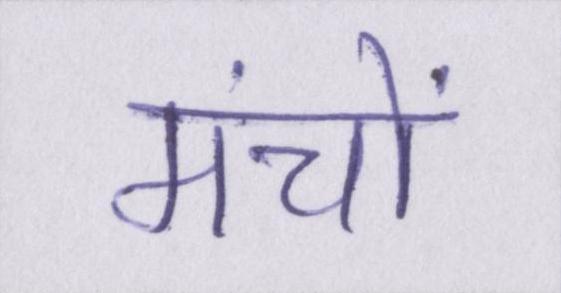 मंचों